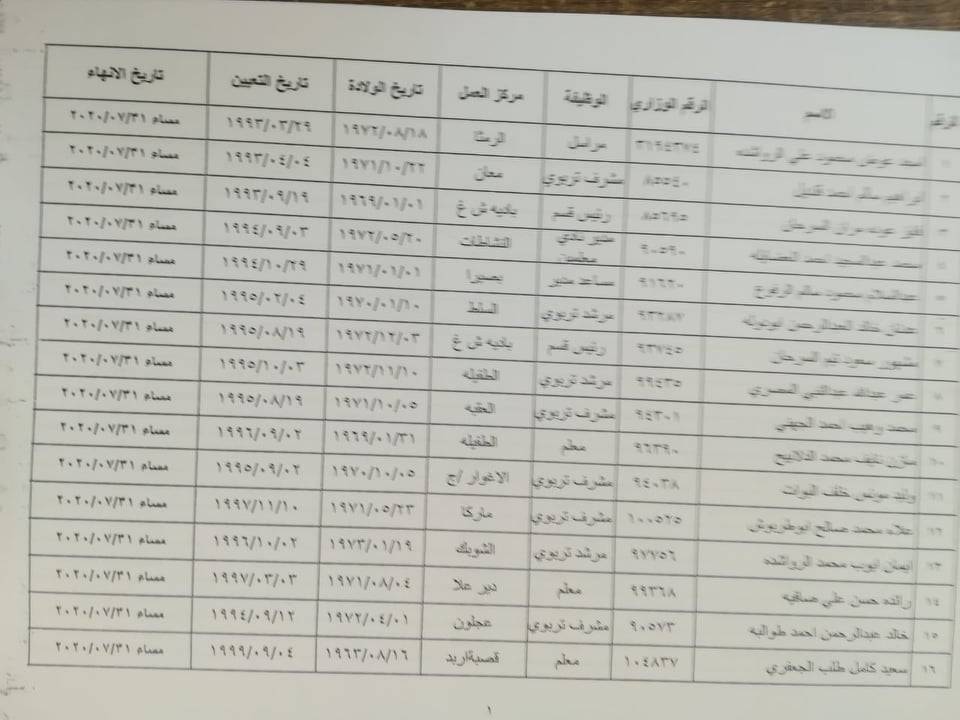 الرقم الاسم الرقم الوزاري الوظيفة مركز العمل تاريخ الولادة تاريخ التعيين تاريخ الانهاء
محمود علي الرواشده ٣١٩٤٣٧٤ مراسل الرمثا ١٩٧٢/٠٨/١٨ ١٩٩٣/٠٣/٢٩ مساء ٢٠٢٠/٠٧/٣١
٨٥٥٤٠ مشرف تربوي معان ١٩٧١/١٠/٢٢ ١٩٩٣/٠٤/٠٤ مساء ٢٠٢٠/٠٧/٣١
السرحان ٨٥٦٩٥ رئيس قسم باديه ش غ ١٩٦٩/٠١/٠١ ١٩٩٣/٠٩/١٩ مساء ٢٠٢٠/٠٧/٣١
محمد احمد ٩٠٥٩٠ مدير نادي معلمين النشاطات ١٩٧٢/٠٥/٢٠ ١٩٩٤/٠٩/٠٣ مساء ٢٠٢٠/٠٧/٣١
عبدالسلام محمود سالم ٩١٦٢٠ مساعد مدير بصيرا ١٩٧١/٠١/٠١ ١٩٩٤/١٠/٢٩ مساء ٢٠٢٠/٠٧/٣١
خالد عبدالرحمن مرشد تربوي السلط ١٩٧٠/٠١/١٠ ١٩٩٥/٠٢/٠٤ مساء ٢٠٢٠/٠٧/٣١
مشهور سعود السرحان ٩٣٧٤٥ رئيس قسم باديه ش غ ١٩٧٢/١٢/٠٣ ١٩٩٥/٠٨/١٩ مساء ٢٠٢٠/٠٧/٣١
عمر عبدالله عبدالنبي المصري ٩٩٤٣٥ مرشد تربوي الطفيله ١٩٧٢/١١/١٠ ١٩٩٥/١٠/٠٣ مساء ٢٠٢٠/٠٧/٣١
٩ محمد احمد ٩٤٣٠١ مشرف تربوي العقبه ١٩٧١/١٠/٠٥ ١٩٩٥/٠٨/١٩ مساء ٢٠٢٠/٠٧/٣١
١٠ مازن نايف محمد ٩٦٣٩٠ معلم الطفيله ١٩٦٩/٠١/٣١ ١٩٩٦/٠٩/٠٢ مساء ٢٠٢٠/٠٧/٣١
١١ خلف ٩٤٠٣٨ مشرف تربوي الاغوار /ج ١٩٧٠/١٠/٠٥ ١٩٩٥/٠٩/٠٢ مساء ٢٠٢٠/٠٧/٣١
١٢ علاء محمد صالح ابوطربوش ١٠٠٥٢٥ مشرف تربوي ماركا ١٩٧١/٠٥/٢٣ ١٩٩٧/١١/١٠ مساء ٢٠٢٠/٠٧/٣١
١٣ ايمان ايوب محمد الرواشده ٩٧٧٥٦ مرشد تربوي الشوبك ١٩٧٣/٠١/١٩ ١٩٩٦/١٠/٠٢ مساء ٢٠٢٠/٠٧/٣١
١٤ رائده حسن علي صافيه ٩٩٣٦٨ معلم دير علا ١٩٧١/٠٨/٠٤ ١٩٩٧/٠٣/٠٣ مساء ٢٠٢٠/٠٧/٣١
١٥ خالد عبدالرحمن احمد طوالبه ٩٠٥٧٣ مشرف تربوي عجلون ١٩٧٢/٠٤/٠١ ١٩٩٤/٠٩/١٢ مساء ٢٠٢٠/٠٧/٣١
١٦ سعيد كامل طلب الجعفري ١٠٤٨٣٧ معلم قصبةاربد ١٩٦٣/٠٨/١٦ ١٩٩٩/٠٩/٠٤ مساء ٢٠٢٠/٠٧/٣١
١